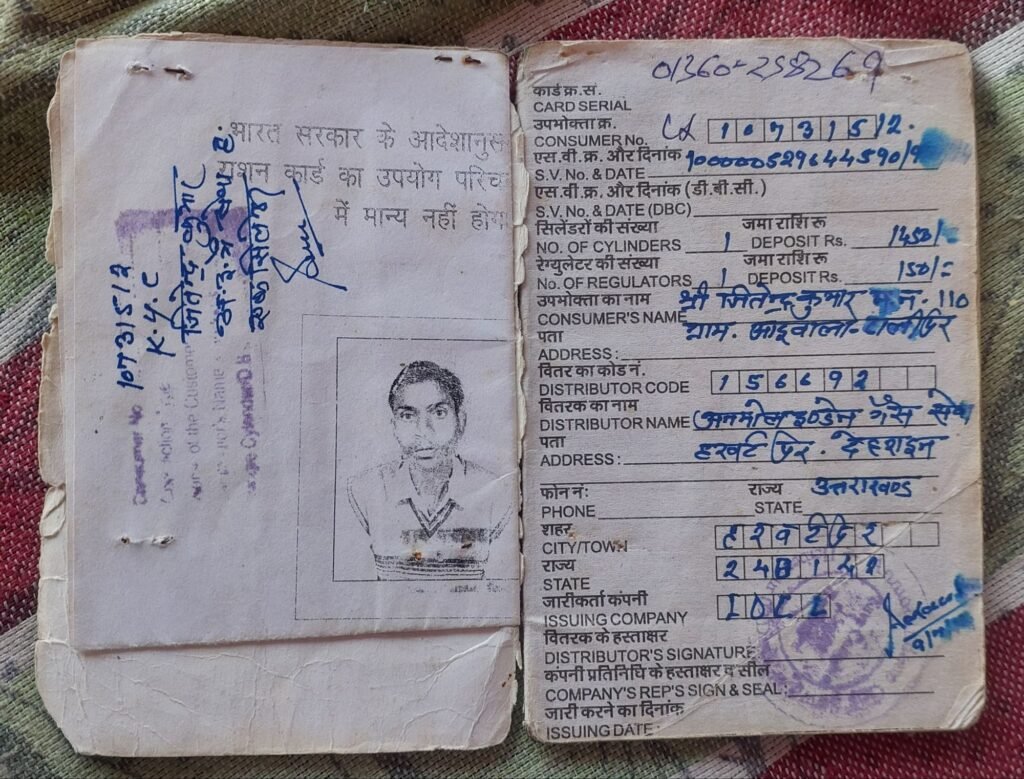 भारत सरकार के आदेशानुस
राशन कार्ड का उपयोग परिच
में मान्य नहीं होगा
10731512
K.Y.C
जितेन्द्र कुमार
एक सिलेंडर
Consumer No
01360-258269
कार्ड क्र.सं.
CARD SERIAL
उपभोक्ता क्र.
CONSUMER No. 10731512.
एस.वी.क्र. और दिनांक
S.V. No. & DATE
एस.वी.क्र. और दिनांक (डी.बी.सी.)
S.V. No. & DATE (DBC)
सिलेंडरों की संख्या जमा राशि रू
NO. OF CYLINDERS 1 DEPOSIT Rs. 1450/-
रेग्युलेटर की संख्या जमा राशि रू
NO. OF REGULATORS 1 DEPOSIT Rs. 150/=
उपभोक्ता का नाम श्री जितेन्द्र कुमार म.न. 110
CONSUMER'S NAME ग्राम. आदूवाला
पता
ADDRESS:
वितर का कोड नं.
DISTRIBUTOR CODE 156692
वितरक का नाम
DISTRIBUTOR NAME अनमोल इण्डेन गैस सेवा
पता हरबर्टपुर. देहरादून
ADDRESS:
फोन नं: राज्य उत्तराखण्ड
PHONE STATE
शहर
CITY/TOWN हरबर्टपुर
राज्य
STATE 248142
जारीकर्ता कंपनी
ISSUING COMPANY IOCL
वितरक के हस्ताक्षर
DISTRIBUTOR'S SIGNATURE
कंपनी प्रतिनिधि के हस्ताक्षर व सील
COMPANY'S REP'S SIGN & SEAL:
जारी करने का दिनांक
ISSUING DATE: